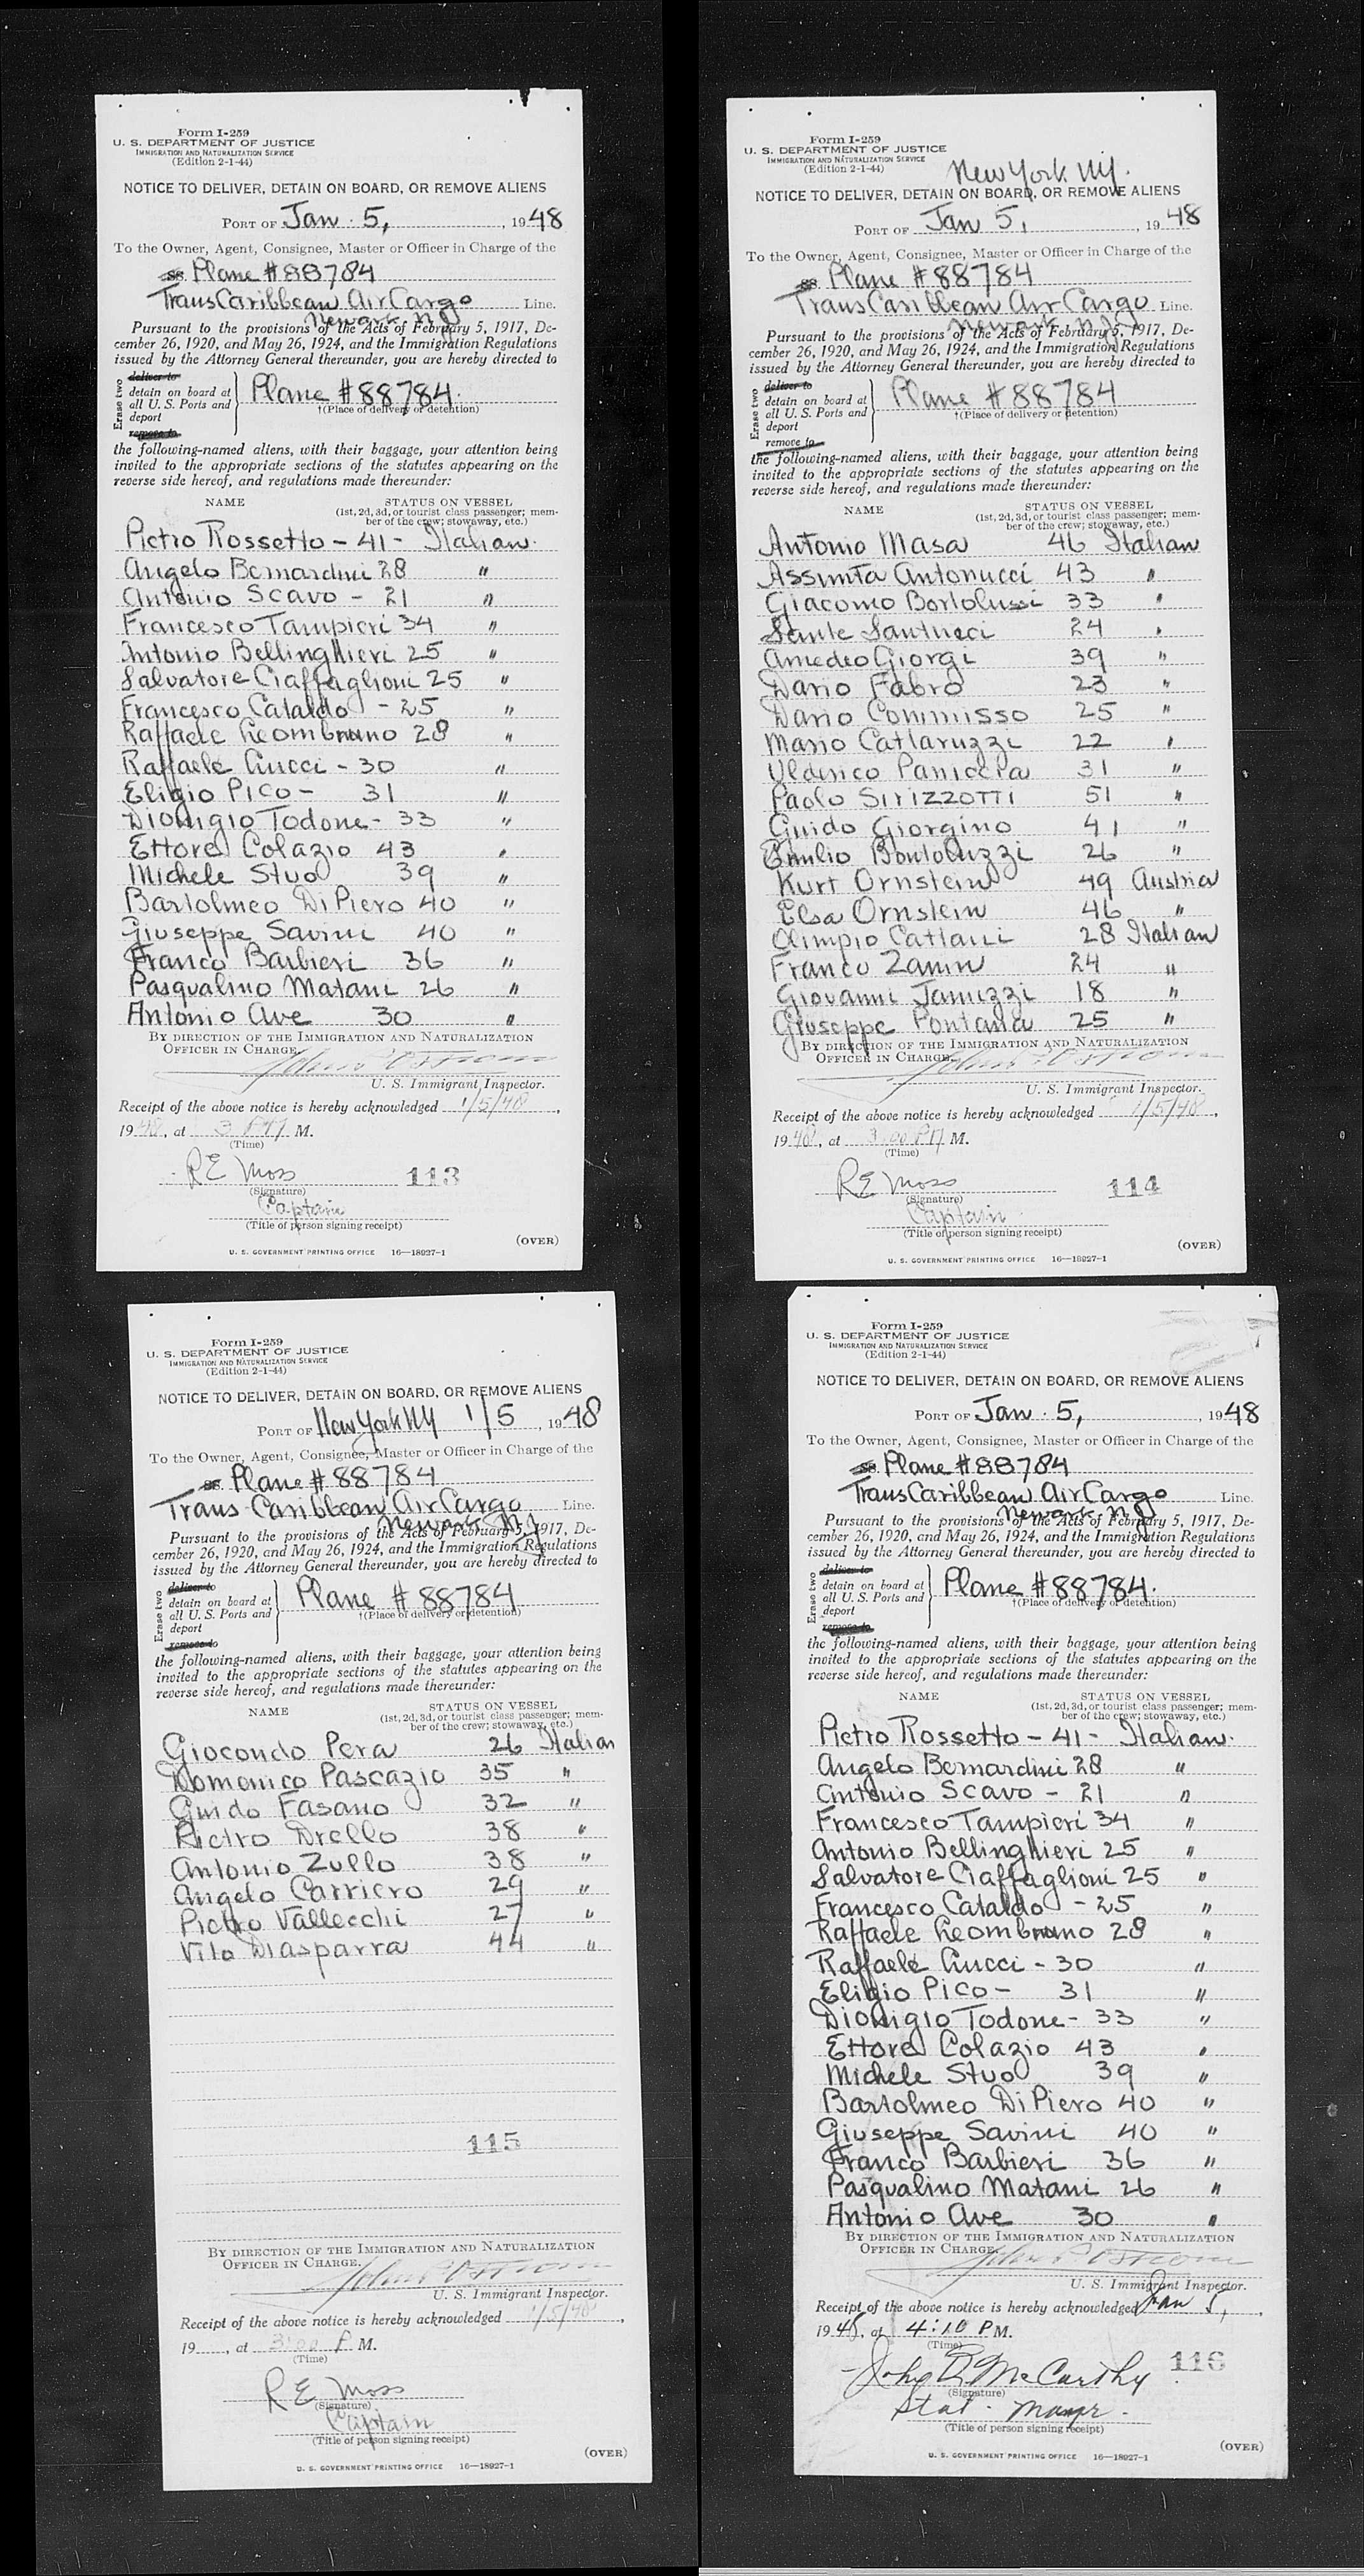 Form I-259
U. S. DEPARTMENT OF JUSTICE
IMMIGRATION AND NATURALIZATION SERVICE
(Edition 2-1-44)
NOTICE TO DELIVER, DETAIN ON BOARD, OR REMOVE ALIENS
PORT OF Jan. 5, , 1948
To the Owner, Agent, Consignee, Master or Officer in Charge of the
SS. Plane #88784
TransCaribbean AirCargo Line.
Newark NJ
Pursuant to the provisions of the Acts of February 5, 1917, De-
cember 26, 1920, and May 26, 1924, and the Immigration Regulations
issued by the Attorney General thereunder, you are hereby directed to
Erase two
deliver to
detain on board at
all U. S. Ports and
deport
remove to
Plane #88784.
†(Place of delivery or detention)
the following-named aliens, with their baggage, your attention being
invited to the appropriate sections of the statutes appearing on the
reverse side hereof, and regulations made thereunder:
NAME STATUS ON VESSEL
(1st, 2d, 3d, or tourist class passenger; mem-
ber of the crew; stowaway, etc.)
Pietro Rossetto - 41 - Italian.
Angelo Bernardini 28 "
Antonio Scavo - 21 "
Francesco Tampieri 34 "
Antonio Bellinghieri 25 "
Salvatore Ciaffaglioni 25 "
Francesco Cataldo - 25 "
Raffaele Leombruno 28 "
Raffaele Ciucci - 30 "
Eligio Pico - 31 "
Dionigio Todone - 33 "
Ettore Colazio 43 "
Michele Stuo 39 "
Bartolmeo DiPiero 40 "
Giuseppe Savini 40 "
Franco Barbieri 36 "
Pasqualino Matani 26 "
Antonio Ave 30 "
BY DIRECTION OF THE IMMIGRATION AND NATURALIZATION
OFFICER IN CHARGE.
John Ostrom
U. S. Immigrant Inspector.
Receipt of the above notice is hereby acknowledged 1/5/48,
1948, at 3 PM M.
(Time)
RE Moss 113
(Signature)
Captain
(Title of person signing receipt)
(OVER)
U. S. GOVERNMENT PRINTING OFFICE 16—18927-1
Form I-259
U. S. DEPARTMENT OF JUSTICE
IMMIGRATION AND NATURALIZATION SERVICE
(Edition 2-1-44)
New York NY.
NOTICE TO DELIVER, DETAIN ON BOARD, OR REMOVE ALIENS
PORT OF Jan 5, , 1948
To the Owner, Agent, Consignee, Master or Officer in Charge of the
SS. Plane #88784
TransCaribbean Air Cargo Line.
Newark NJ
Pursuant to the provisions of the Acts of February 5, 1917, De-
cember 26, 1920, and May 26, 1924, and the Immigration Regulations
issued by the Attorney General thereunder, you are hereby directed to
Erase two
deliver to
detain on board at
all U. S. Ports and
deport
remove to
Plane #88784
†(Place of delivery or detention)
the following-named aliens, with their baggage, your attention being
invited to the appropriate sections of the statutes appearing on the
reverse side hereof, and regulations made thereunder:
NAME STATUS ON VESSEL
(1st, 2d, 3d, or tourist class passenger; mem-
ber of the crew; stowaway, etc.)
Antonio Masa 46 Italian
Assunta Antonucci 43 "
Giacomo Bortolussi 33 "
Sante Santucci 24 "
Amedeo Giorgi 39 "
Dario Fabro 23 "
Dario Commisso 25 "
Mario Cattaruzzi 22 "
Ulderico Paniccia 31 "
Paolo Sirizzotti 51 "
Guido Giorgino 41 "
Emilio Bortoluzzi 26 "
Kurt Ornstein 49 Austria
Elsa Ornstein 46 "
Olimpio Cattani 28 Italian
Franco Zanin 24 "
Giovanni Jannizzi 18 "
Giuseppe Fontana 25 "
BY DIRECTION OF THE IMMIGRATION AND NATURALIZATION
OFFICER IN CHARGE.
John Ostrom
U. S. Immigrant Inspector.
Receipt of the above notice is hereby acknowledged 1/5/48,
1948, at 3:00 PM M.
(Time)
RE Moss 114
(Signature)
Captain
(Title of person signing receipt)
(OVER)
U. S. GOVERNMENT PRINTING OFFICE 16—18927-1
Form I-259
U. S. DEPARTMENT OF JUSTICE
IMMIGRATION AND NATURALIZATION SERVICE
(Edition 2-1-44)
NOTICE TO DELIVER, DETAIN ON BOARD, OR REMOVE ALIENS
PORT OF New York NY 1/5, 1948
To the Owner, Agent, Consignee, Master or Officer in Charge of the
SS. Plane #88784
Trans-Caribbean AirCargo Line.
Newark NJ
Pursuant to the provisions of the Acts of February 5, 1917, De-
cember 26, 1920, and May 26, 1924, and the Immigration Regulations
issued by the Attorney General thereunder, you are hereby directed to
Erase two
deliver to
detain on board at
all U. S. Ports and
deport
remove to
Plane #88784
†(Place of delivery or detention)
the following-named aliens, with their baggage, your attention being
invited to the appropriate sections of the statutes appearing on the
reverse side hereof, and regulations made thereunder:
NAME STATUS ON VESSEL
(1st, 2d, 3d, or tourist class passenger; mem-
ber of the crew; stowaway, etc.)
Giocondo Pera 26 Italian
Domenico Pascazio 35 "
Guido Fasano 32 "
Pietro Drello 38 "
Antonio Zullo 38 "
Angelo Carriero 29 "
Pietro Vallecchi 27 "
Vito Diasparra 44 "
115
BY DIRECTION OF THE IMMIGRATION AND NATURALIZATION
OFFICER IN CHARGE.
John Ostrom
U. S. Immigrant Inspector.
Receipt of the above notice is hereby acknowledged 1/5/48,
19 , at 3:00 P. M.
(Time)
R E Moss
(Signature)
Captain
(Title of person signing receipt)
(OVER)
U. S. GOVERNMENT PRINTING OFFICE 16—18927-1
Form I-259
U. S. DEPARTMENT OF JUSTICE
IMMIGRATION AND NATURALIZATION SERVICE
(Edition 2-1-44)
NOTICE TO DELIVER, DETAIN ON BOARD, OR REMOVE ALIENS
PORT OF Jan. 5, , 1948
To the Owner, Agent, Consignee, Master or Officer in Charge of the
SS. Plane #88784
TransCaribbean AirCargo Line.
Newark NJ
Pursuant to the provisions of the Acts of February 5, 1917, De-
cember 26, 1920, and May 26, 1924, and the Immigration Regulations
issued by the Attorney General thereunder, you are hereby directed to
Erase two
deliver to
detain on board at
all U. S. Ports and
deport
remove to
Plane #88784.
†(Place of delivery or detention)
the following-named aliens, with their baggage, your attention being
invited to the appropriate sections of the statutes appearing on the
reverse side hereof, and regulations made thereunder:
NAME STATUS ON VESSEL
(1st, 2d, 3d, or tourist class passenger; mem-
ber of the crew; stowaway, etc.)
Pietro Rossetto - 41 - Italian.
Angelo Bernardini 28 "
Antonio Scavo - 21 "
Francesco Tampieri 34 "
Antonio Bellinghieri 25 "
Salvatore Ciaffaglioni 25 "
Francesco Cataldo - 25 "
Raffaele Leombruno 28 "
Raffaele Ciucci - 30 "
Eligio Pico - 31 "
Dionigio Todone - 33 "
Ettore Colazio 43 "
Michele Stuo 39 "
Bartolmeo DiPiero 40 "
Giuseppe Savini 40 "
Franco Barbieri 36 "
Pasqualino Matani 26 "
Antonio Ave 30 "
BY DIRECTION OF THE IMMIGRATION AND NATURALIZATION
OFFICER IN CHARGE.
John Ostrom
U. S. Immigrant Inspector.
Receipt of the above notice is hereby acknowledged Jan 5,
1948, at 4:10 P M.
(Time)
John McCarthy 116
(Signature)
Stat. Mangr.
(Title of person signing receipt)
(OVER)
U. S. GOVERNMENT PRINTING OFFICE 16—18927-1